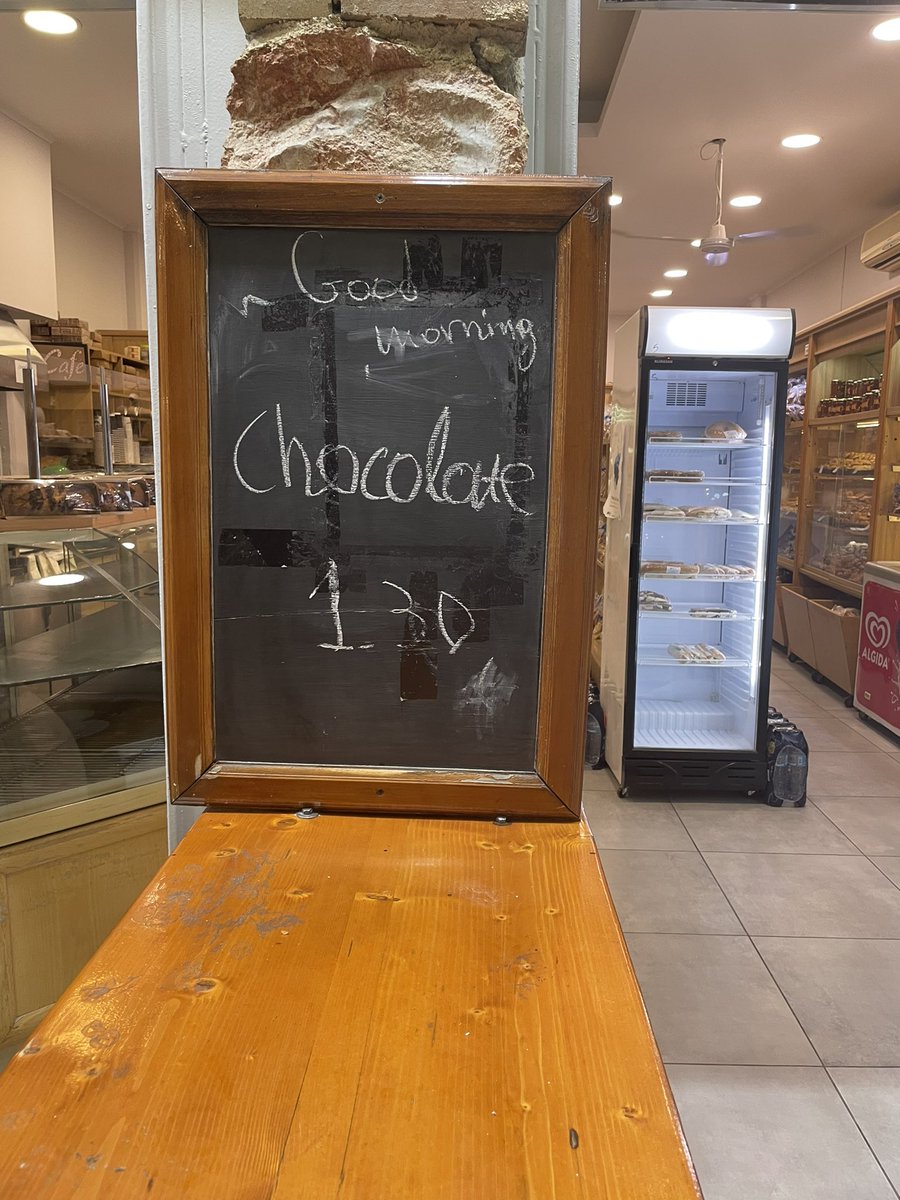 Good
morning
Chocolate
1.30
Cafe
ALGIDA